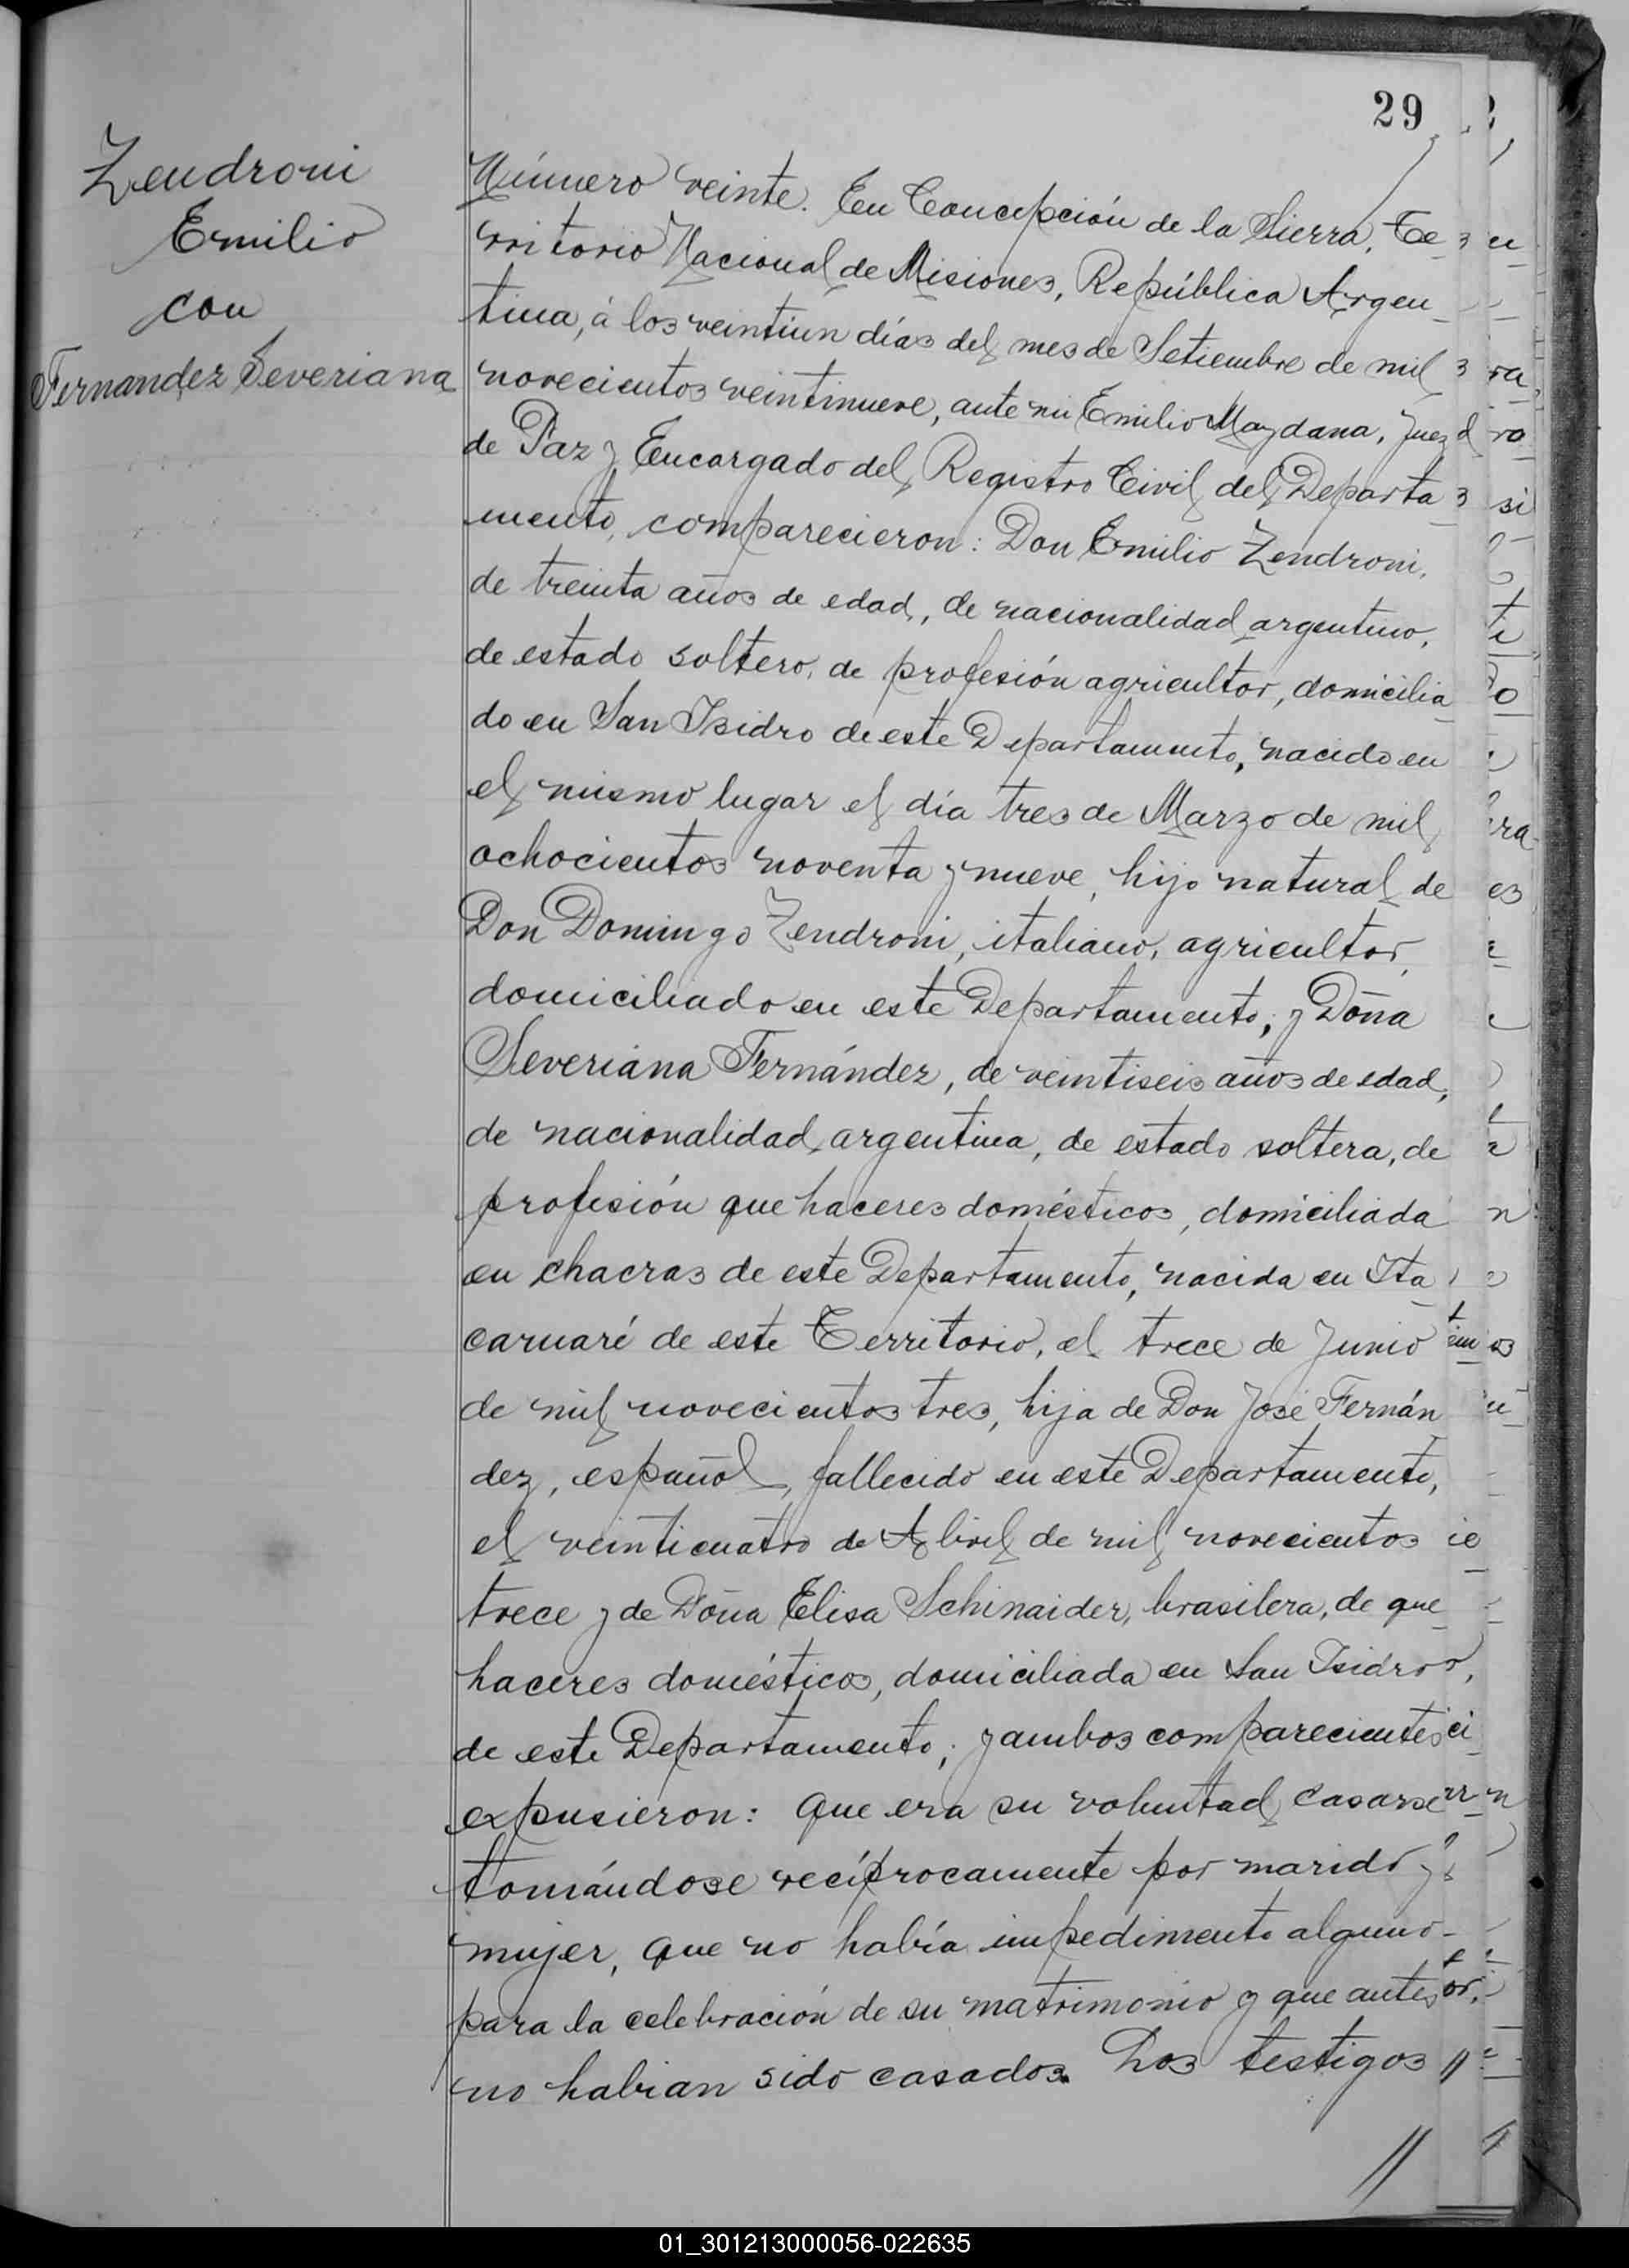 29
Zendroni
Emilio
con
Fernandez Severiana
Número veinte. En Concepción de la Sierra, Te
rritorio Nacional de Misiones, República Argen_
tina, á los veintiún días del mes de Setiembre de mil
novecientos veintinueve, ante mi Emilio Maydana, Juez
de Paz y Encargado del Registro Civil del Departa
mento, comparecieron: Don Emilio Zendroni,
de treinta años de edad, de nacionalidad argentino,
de estado soltero, de profesión agricultor, domicilia
do en San Isidro de este Departamento, nacido en
el mismo lugar el día tres de Marzo de mil
ochocientos noventa y nueve, hijo natural de
Don Domingo Zendroni, italiano, agricultor,
domiciliado en este Departamento; y Doña
Severiana Fernández, de veintiseis años de edad,
de nacionalidad argentina, de estado soltera, de
profesión que haceres domésticos, domiciliada
en chacras de este Departamento, nacida en Ita
caruaré de este Territorio, el trece de Junio
de mil novecientos tres, hija de Don José Fernán
dez, español, fallecido en este Departamento,
el veinticuatro de Abril de mil novecientos
trece y de Doña Elisa Schinaider, brasilera, de que
haceres domésticos, domiciliada en San Isidro,
de este Departamento; y ambos comparecientes
expusieron: que era su voluntad casarse
tomándose recíprocamente por marido y
mujer, que no había impedimento alguno
para la celebración de su matrimonio y que antes
no habian sido casados. Los testigos //
//
01_301213000056-022635